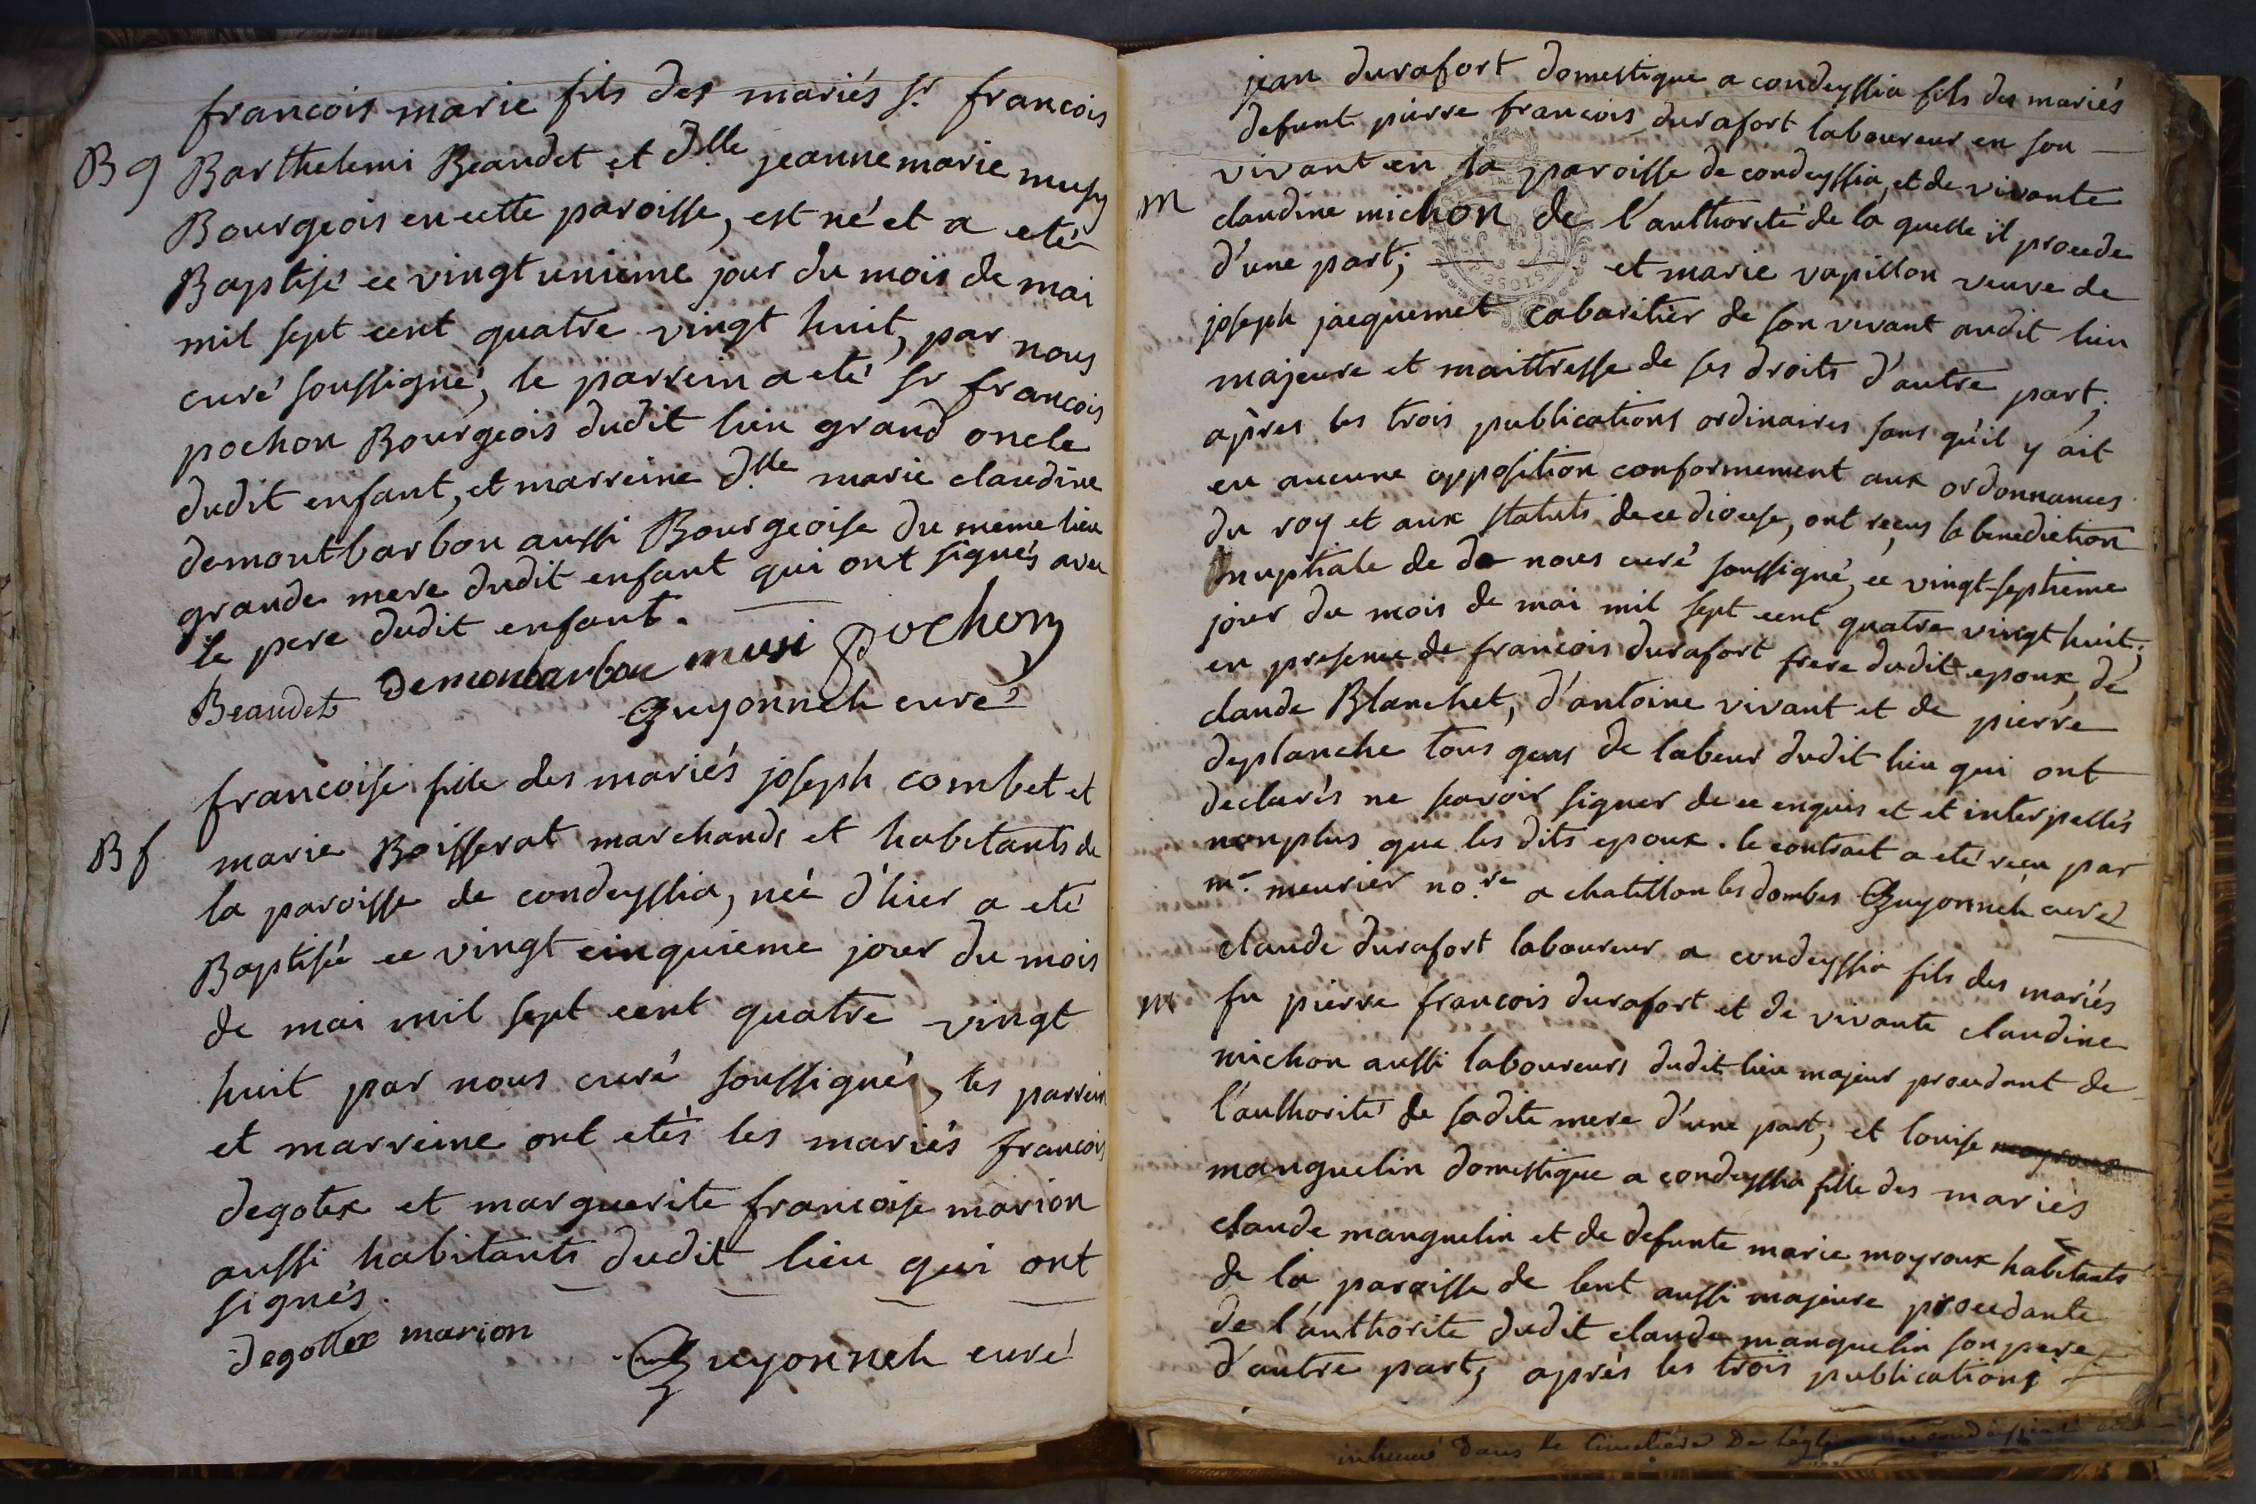 francois marie fils des mariés sr francois
B g Barthelemi Beaudet et dlle jeanne marie musy
Bourgeois en cette paroisse, est né et a eté
Baptisé ce vingt unieme jour du mois de mai
mil sept cent quatre vingt huit, par nous
curé soussigné, le parrein a eté sr francois
pochon Bourgeois dudit lieu grand oncle
dudit enfant, et marreine dlle marie claudine
demontbarbon aussi Bourgeoise du meme lieu
grande mere dudit enfant qui ont signés avec
le pere dudit enfant.
Beaudet demontbarbon musi pochon
Guyonneh curé
francoise fille des mariés joseph combet et
B f marie Boisserat marchands et habitants de
la paroisse de condeyssia, née d'hier a eté
Baptisée ce vingt cinquieme jour du mois
de mai mil sept cent quatre vingt
huit par nous curé soussignés, les parrein
et marreine ont etés les mariés francois
degotex et marguerite francoise marion
aussi habitants dudit lieu qui ont
signés.
degottex marion
Guyonneh curé
jean durafort domestique a condeyssia fils des mariés
defunt pierre francois durafort laboureur en son
vivant en la paroisse de condeyssia, et de vivante
m claudine michon de l'authorité de la quelle il procede
d'une part; et marie vapillon veuve de
joseph jacquemet cabaritier de son vivant audit lieu
majeure et maittresse de ses droits d'autre part;
après les trois publications ordinaires sans qu'il y ait
eu aucune opposition conformement aux ordonnances
du roy et aux statuts de ce diocese, ont reçus la benediction
nuptiale de de nous curé soussigné, ce vingt-septieme
jour du mois de mai mil sept cent quatre vingt huit;
en presence de francois durafort frere dudit epoux, de
claude Blanchet, d'antoine vivant et de pierre
deplanche tous gens de labeur dudit lieu qui ont
declarés ne scavoir signer de ce enquis et et interpellés
nonplus que les dits epoux. le contract a eté reçu par
me. meurier no.re a chatillon les dombes Guyonneh curé
claude durafort laboureur a condeyssia fils des mariés
m fu pierre francois durafort et de vivante claudine
michon aussi laboureurs dudit lieu majeur procedant de
l'authorité de sadite mere d'une part; et louise
manguelin domestique a condeyssia fille des mariés
claude manguelin et de defunte marie moyroux habitants
de la paroisse de lent aussi majeure procedante
de l'authorite dudit claude manguelin son pere
d'autre part; après les trois publications
inhumé dans le cimetière De léglise